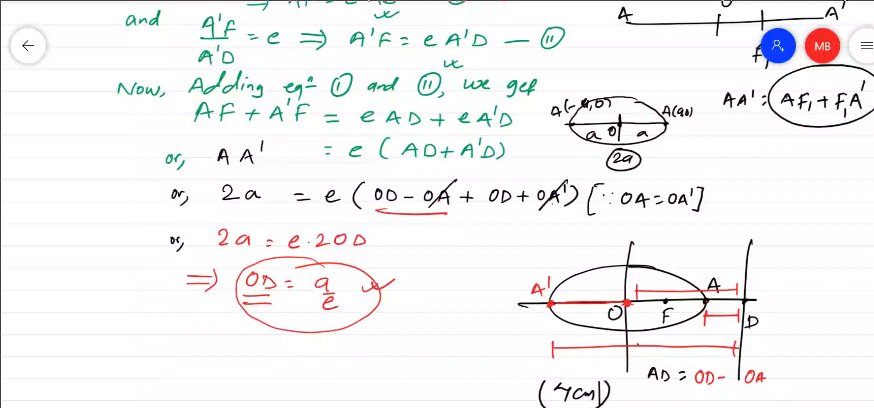 and A'F/A'D = e ⇒ A'F = e A'D — ⑪
Now, Adding eqⁿ Ⓘ and ⑪, we get
AF + A'F = e AD + e A'D
or, A A' = e ( AD + A'D )
or, 2a = e ( OD - OA + OD + OA' ) [∵ OA = OA']
or, 2a = e . 2OD
⇒ OD = a/e
A O A'
F₁
MB
AA' = AF₁ + F₁A'
A(-a,0) A(a,0)
a O a
2a
A' O F A D
AD = OD - OA